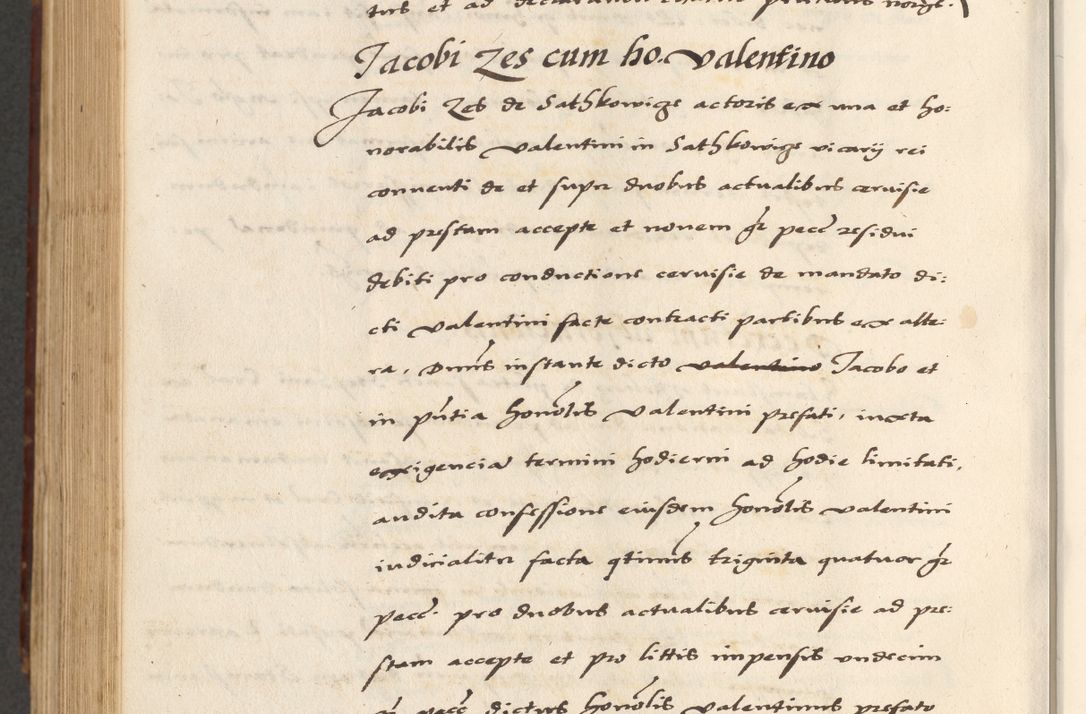 tus et ad declarandum
Jacobi Zes cum ho. Valentino
Jacobi Zes de Sathkowicze actoris ex una et ho:
norabilis Valentini in Sathkowicze vicarij rei
conventi de et super duobus actualibus cervisie
ad prestam accepte et novem gr pecc residui
debiti pro conductione cervisie de mandato di:
cti Valentini facte contracti partibus ex alte:
ra, Dnus instante dicto Valentino Jacobo et
in pntia honolis Valentini prefati, iuxta
exigencia termini hodierni ad hodie limitati,
audita confessione eiusdem honolis Valentini
iudicialiter facta qtinus triginta quatuor gr
pecc pro duobus actualibus cervisie ad pre:
stam accepte et pro littis impensis undecim
gr pecc dictus honolis Valentinus prefato